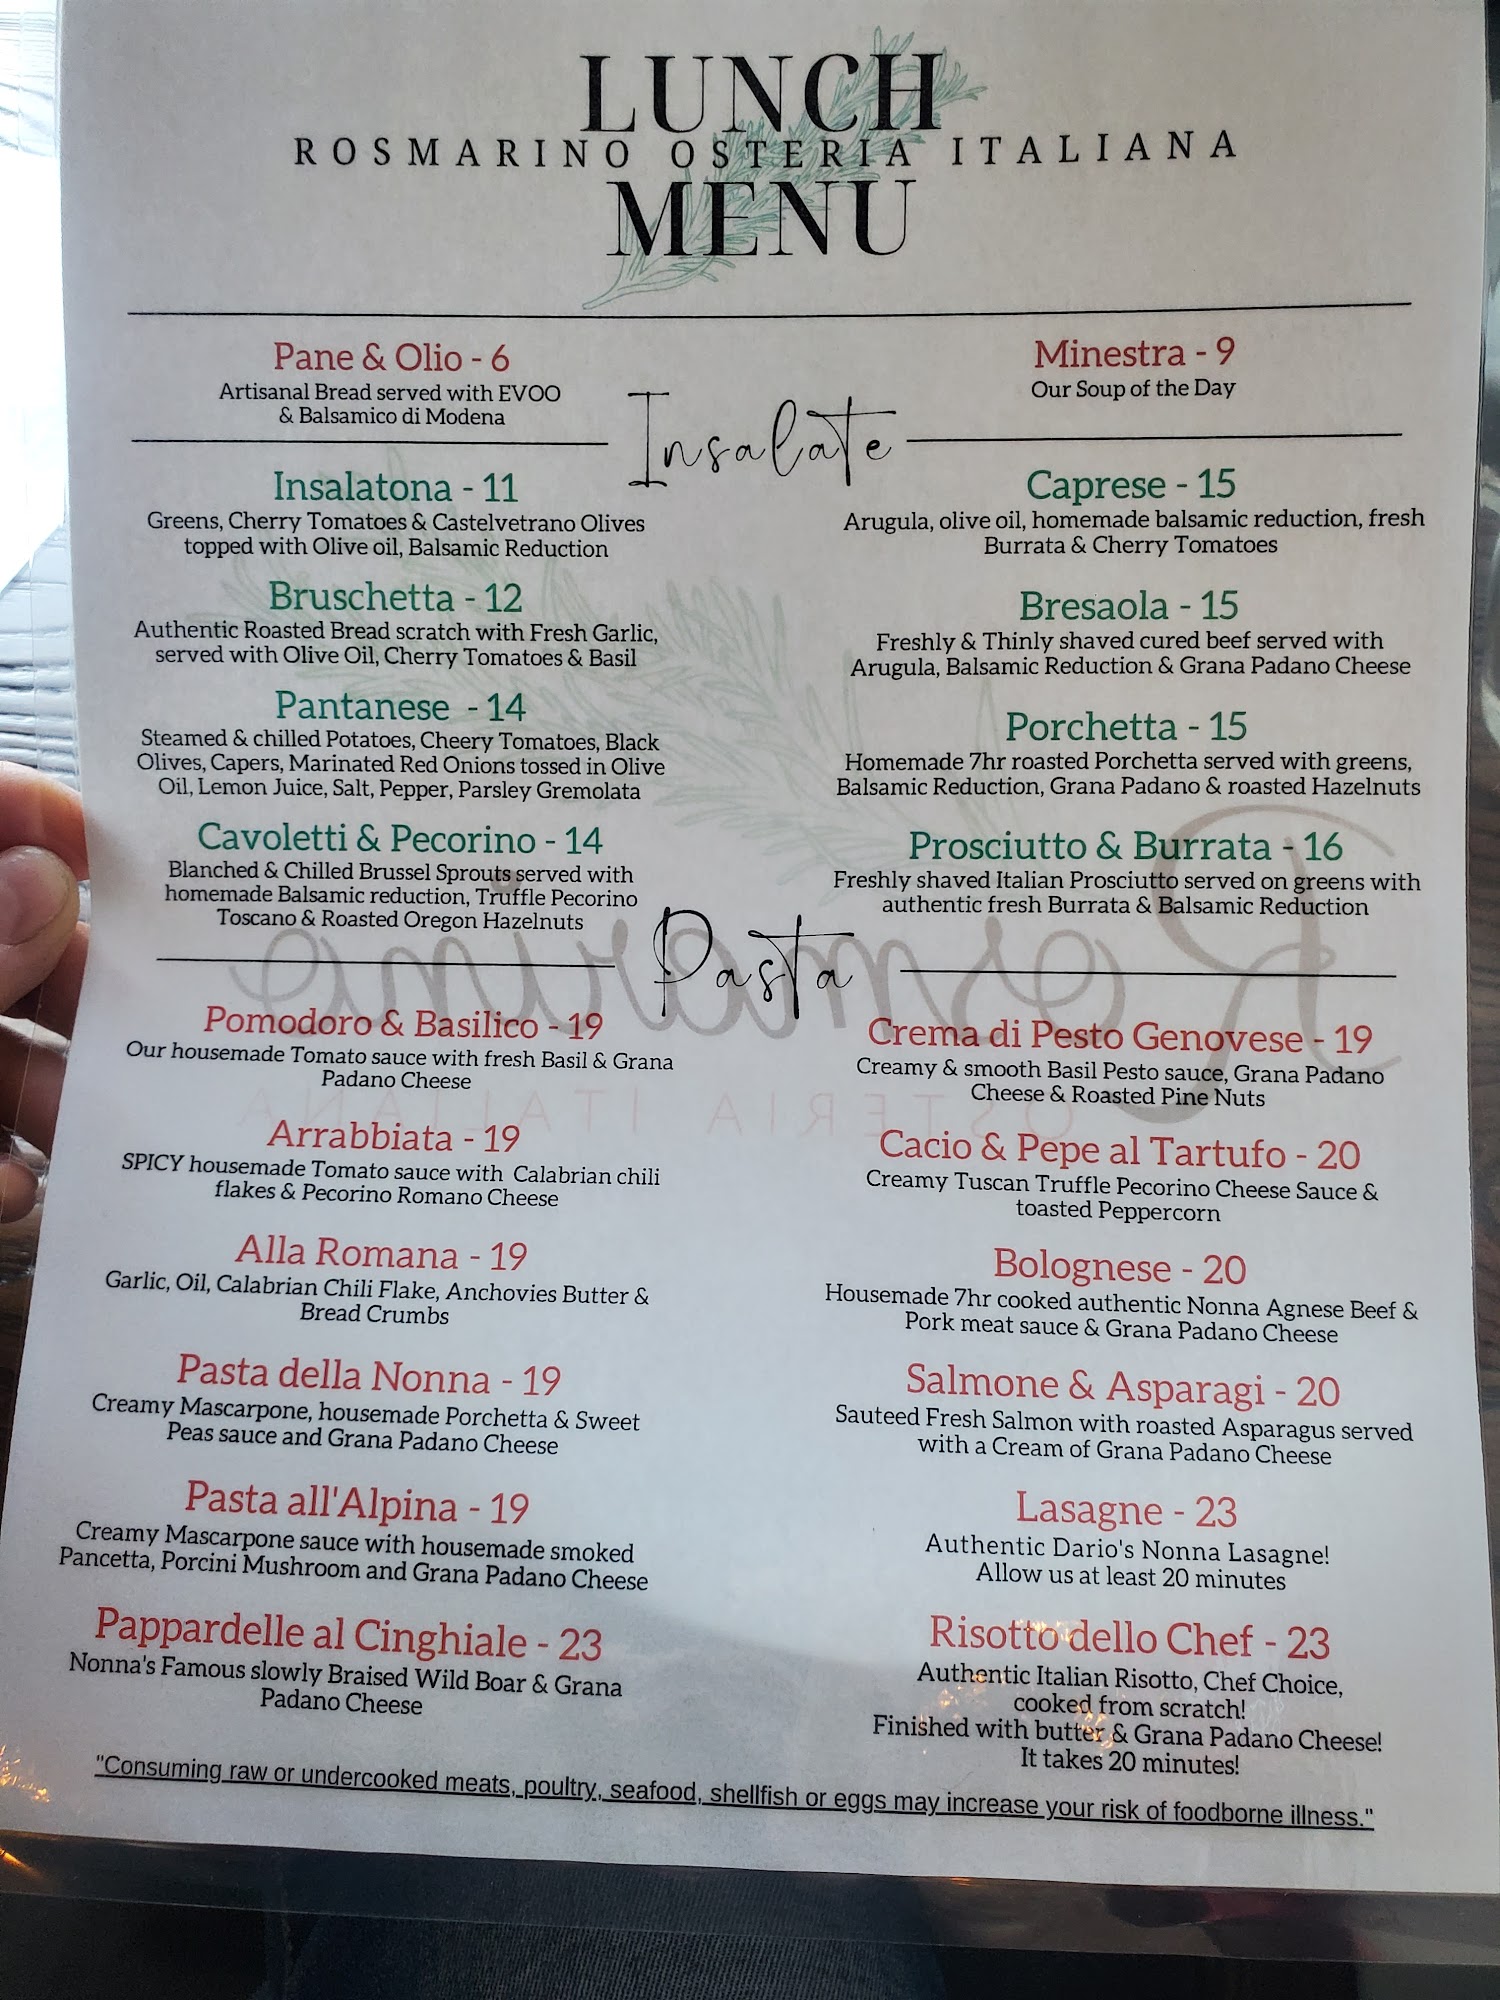 LUNCH
ROSMARINO OSTERIA ITALIANA
MENU
Pane & Olio - 6
Artisanal Bread served with EVOO
& Balsamico di Modena
Minestra - 9
Our Soup of the Day
Insalate
Insalatona - 11
Greens, Cherry Tomatoes & Castelvetrano Olives
topped with Olive oil, Balsamic Reduction
Bruschetta - 12
Authentic Roasted Bread scratch with Fresh Garlic,
served with Olive Oil, Cherry Tomatoes & Basil
Pantanese - 14
Steamed & chilled Potatoes, Cheery Tomatoes, Black
Olives, Capers, Marinated Red Onions tossed in Olive
Oil, Lemon Juice, Salt, Pepper, Parsley Gremolata
Cavoletti & Pecorino - 14
Blanched & Chilled Brussel Sprouts served with
homemade Balsamic reduction, Truffle Pecorino
Toscano & Roasted Oregon Hazelnuts
Caprese - 15
Arugula, olive oil, homemade balsamic reduction, fresh
Burrata & Cherry Tomatoes
Bresaola - 15
Freshly & Thinly shaved cured beef served with
Arugula, Balsamic Reduction & Grana Padano Cheese
Porchetta - 15
Homemade 7hr roasted Porchetta served with greens,
Balsamic Reduction, Grana Padano & roasted Hazelnuts
Prosciutto & Burrata - 16
Freshly shaved Italian Prosciutto served on greens with
authentic fresh Burrata & Balsamic Reduction
Pasta
Rosmarino
OSTERIA ITALIANA
Pomodoro & Basilico - 19
Our housemade Tomato sauce with fresh Basil & Grana
Padano Cheese
Arrabbiata - 19
SPICY housemade Tomato sauce with Calabrian chili
flakes & Pecorino Romano Cheese
Alla Romana - 19
Garlic, Oil, Calabrian Chili Flake, Anchovies Butter &
Bread Crumbs
Pasta della Nonna - 19
Creamy Mascarpone, housemade Porchetta & Sweet
Peas sauce and Grana Padano Cheese
Pasta all'Alpina - 19
Creamy Mascarpone sauce with housemade smoked
Pancetta, Porcini Mushroom and Grana Padano Cheese
Pappardelle al Cinghiale - 23
Nonna's Famous slowly Braised Wild Boar & Grana
Padano Cheese
Crema di Pesto Genovese - 19
Creamy & smooth Basil Pesto sauce, Grana Padano
Cheese & Roasted Pine Nuts
Cacio & Pepe al Tartufo - 20
Creamy Tuscan Truffle Pecorino Cheese Sauce &
toasted Peppercorn
Bolognese - 20
Housemade 7hr cooked authentic Nonna Agnese Beef &
Pork meat sauce & Grana Padano Cheese
Salmone & Asparagi - 20
Sauteed Fresh Salmon with roasted Asparagus served
with a Cream of Grana Padano Cheese
Lasagne - 23
Authentic Dario's Nonna Lasagne!
Allow us at least 20 minutes
Risotto dello Chef - 23
Authentic Italian Risotto, Chef Choice,
cooked from scratch!
Finished with butter & Grana Padano Cheese!
It takes 20 minutes!
"Consuming raw or undercooked meats, poultry, seafood, shellfish or eggs may increase your risk of foodborne illness."